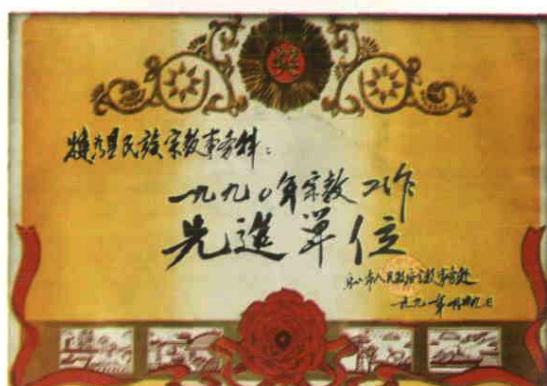 奖
犍为县民族宗教事务科:
一九九〇年宗教工作
先進单位
乐山市人民政府宗教事务处
一九九一年 月 九日